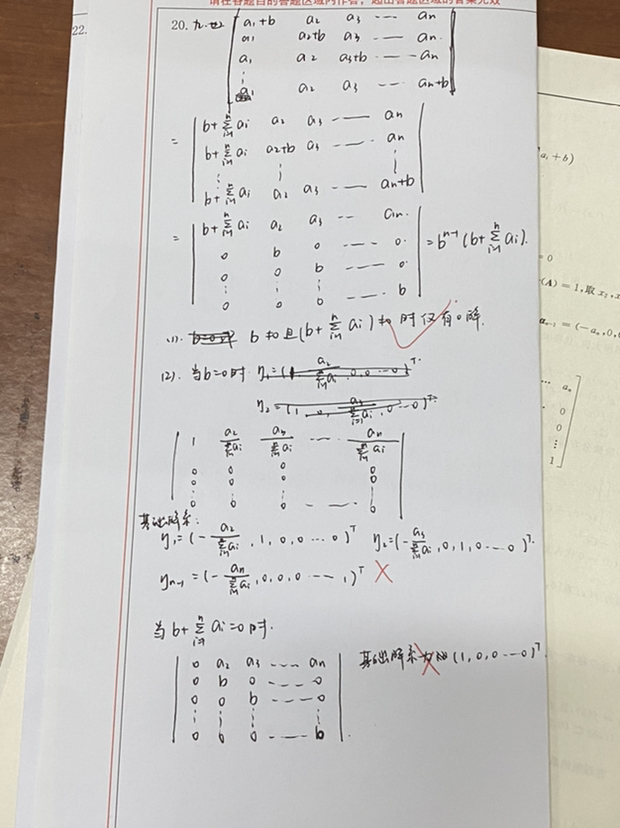 请在各题目的答题区域内作答，超出答题区域的答案无效
22.
20. a₁+b a₂ a₃ ---- aₙ
a₁ a₂+b a₃ ---- aₙ
a₁ a₂ a₃+b ---- aₙ
⋮
a₁ a₂ a₃ ---- aₙ+b
= | b+∑ᵢ₌₁ⁿ aᵢ a₂ a₃ ---- aₙ
b+∑ᵢ₌₁ⁿ aᵢ a₂+b a₃ ---- aₙ
⋮ ⋮ ⋮
b+∑ᵢ₌₁ⁿ aᵢ a₂ a₃ ---- aₙ+b |
= | b+∑ᵢ₌₁ⁿ aᵢ a₂ a₃ --- aₙ
0 b 0 ---- 0
0 0 b ---- 0
0 0 0 ---- b | = bⁿ⁻¹(b+∑ᵢ₌₁ⁿ aᵢ).
(1). b≠0 且(b+∑ᵢ₌₁ⁿ aᵢ)≠0 时仅有0解.
(2). 当b=0时
| 1 a₂/∑ᵢ₌₁ⁿ aᵢ a₃/∑ᵢ₌₁ⁿ aᵢ ---- aₙ/∑ᵢ₌₁ⁿ aᵢ
0 0 0 0
0 0 0 0
⋮ ⋮ ⋮ ⋮
0 0 0 ---- 0 |
基础解系:
η₁=(-a₂/∑ᵢ₌₁ⁿ aᵢ, 1, 0, 0 --- 0)ᵀ η₂=(-a₃/∑ᵢ₌₁ⁿ aᵢ, 0, 1, 0 --- 0)ᵀ.
ηₙ₋₁=(-aₙ/∑ᵢ₌₁ⁿ aᵢ, 0, 0, 0 ---- 1)ᵀ
当b+∑ᵢ₌₁ⁿ aᵢ=0时.
| 0 a₂ a₃ ---- aₙ
0 b 0 ---- 0
0 0 b ---- 0
⋮ ⋮ ⋮ ⋮
0 0 0 ---- b |.
基础解系为 (1, 0, 0 --- 0)ᵀ.
aᵢ+b)
=0
(A)=1,取x₂,x
αₙ₋₁=(-aₙ,0,0
⋯ aₙ
⋯ 0
0
⋮
1